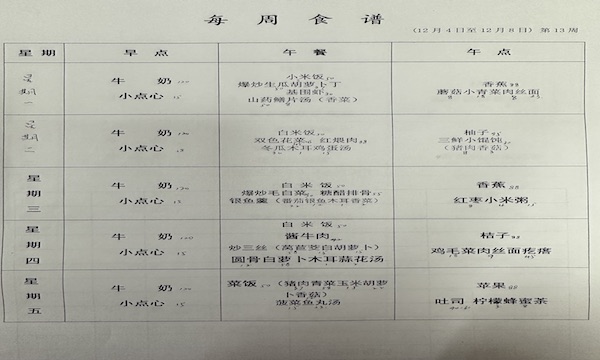 每周食谱
(12月4日至12月8日) 第13周
星期 早点 午餐 午点
星期一
牛奶
小点心
小米饭
爆炒生瓜胡萝卜丁
基围虾
山药鳝片汤（香菜）
香蕉
蘑菇小青菜肉丝面
星期二
牛奶
小点心
白米饭
双色花菜 红煨肉
冬瓜木耳鸡蛋汤
柚子
三鲜小馄饨
（猪肉香菇）
星期三
牛奶
小点心
白米饭
爆炒毛白菜 糖醋排骨
银鱼羹（番茄银鱼木耳香菜）
香蕉
红枣小米粥
星期四
牛奶
小点心
白米饭
酱牛肉
炒三丝（莴苣茭白胡萝卜）
圆骨白萝卜木耳蒜花汤
桔子
鸡毛菜肉丝面疙瘩
星期五
牛奶
小点心
菜饭（猪肉青菜玉米胡萝
卜香菇）
菠菜鱼丸汤
苹果
吐司 柠檬蜂蜜茶